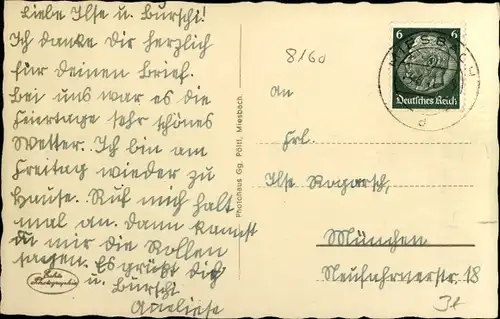 Liebe Ilse u. Burschi!
Ich danke Dir herzlich
für Deinen Brief.
Bei uns war es die
Feiertage sehr schönes
Wetter. Ich bin am
Freitag wieder zu
Hause. Ruf mich halt
mal an. Dann kannst
du mir die Rollen
sagen. Es grüßt dich
u. Burschi
Anneliese
Echte
Photographie
Photohaus Gg. Pöltl, Miesbach
8/60
6 6
Deutsches Reich
MIESBACH
An
Frl.
Ilse Rogarsch,
München
Neufahrnerstr. 18